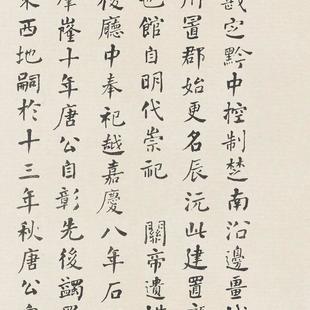 戡定黔中控制楚南沿邊疆域
置郡始更名辰沅此建置
館自明代崇祀 關帝遺
後廳中奉祀越嘉慶八年石
十年唐公自彰先後蠲
西地嗣於十三年秋唐公